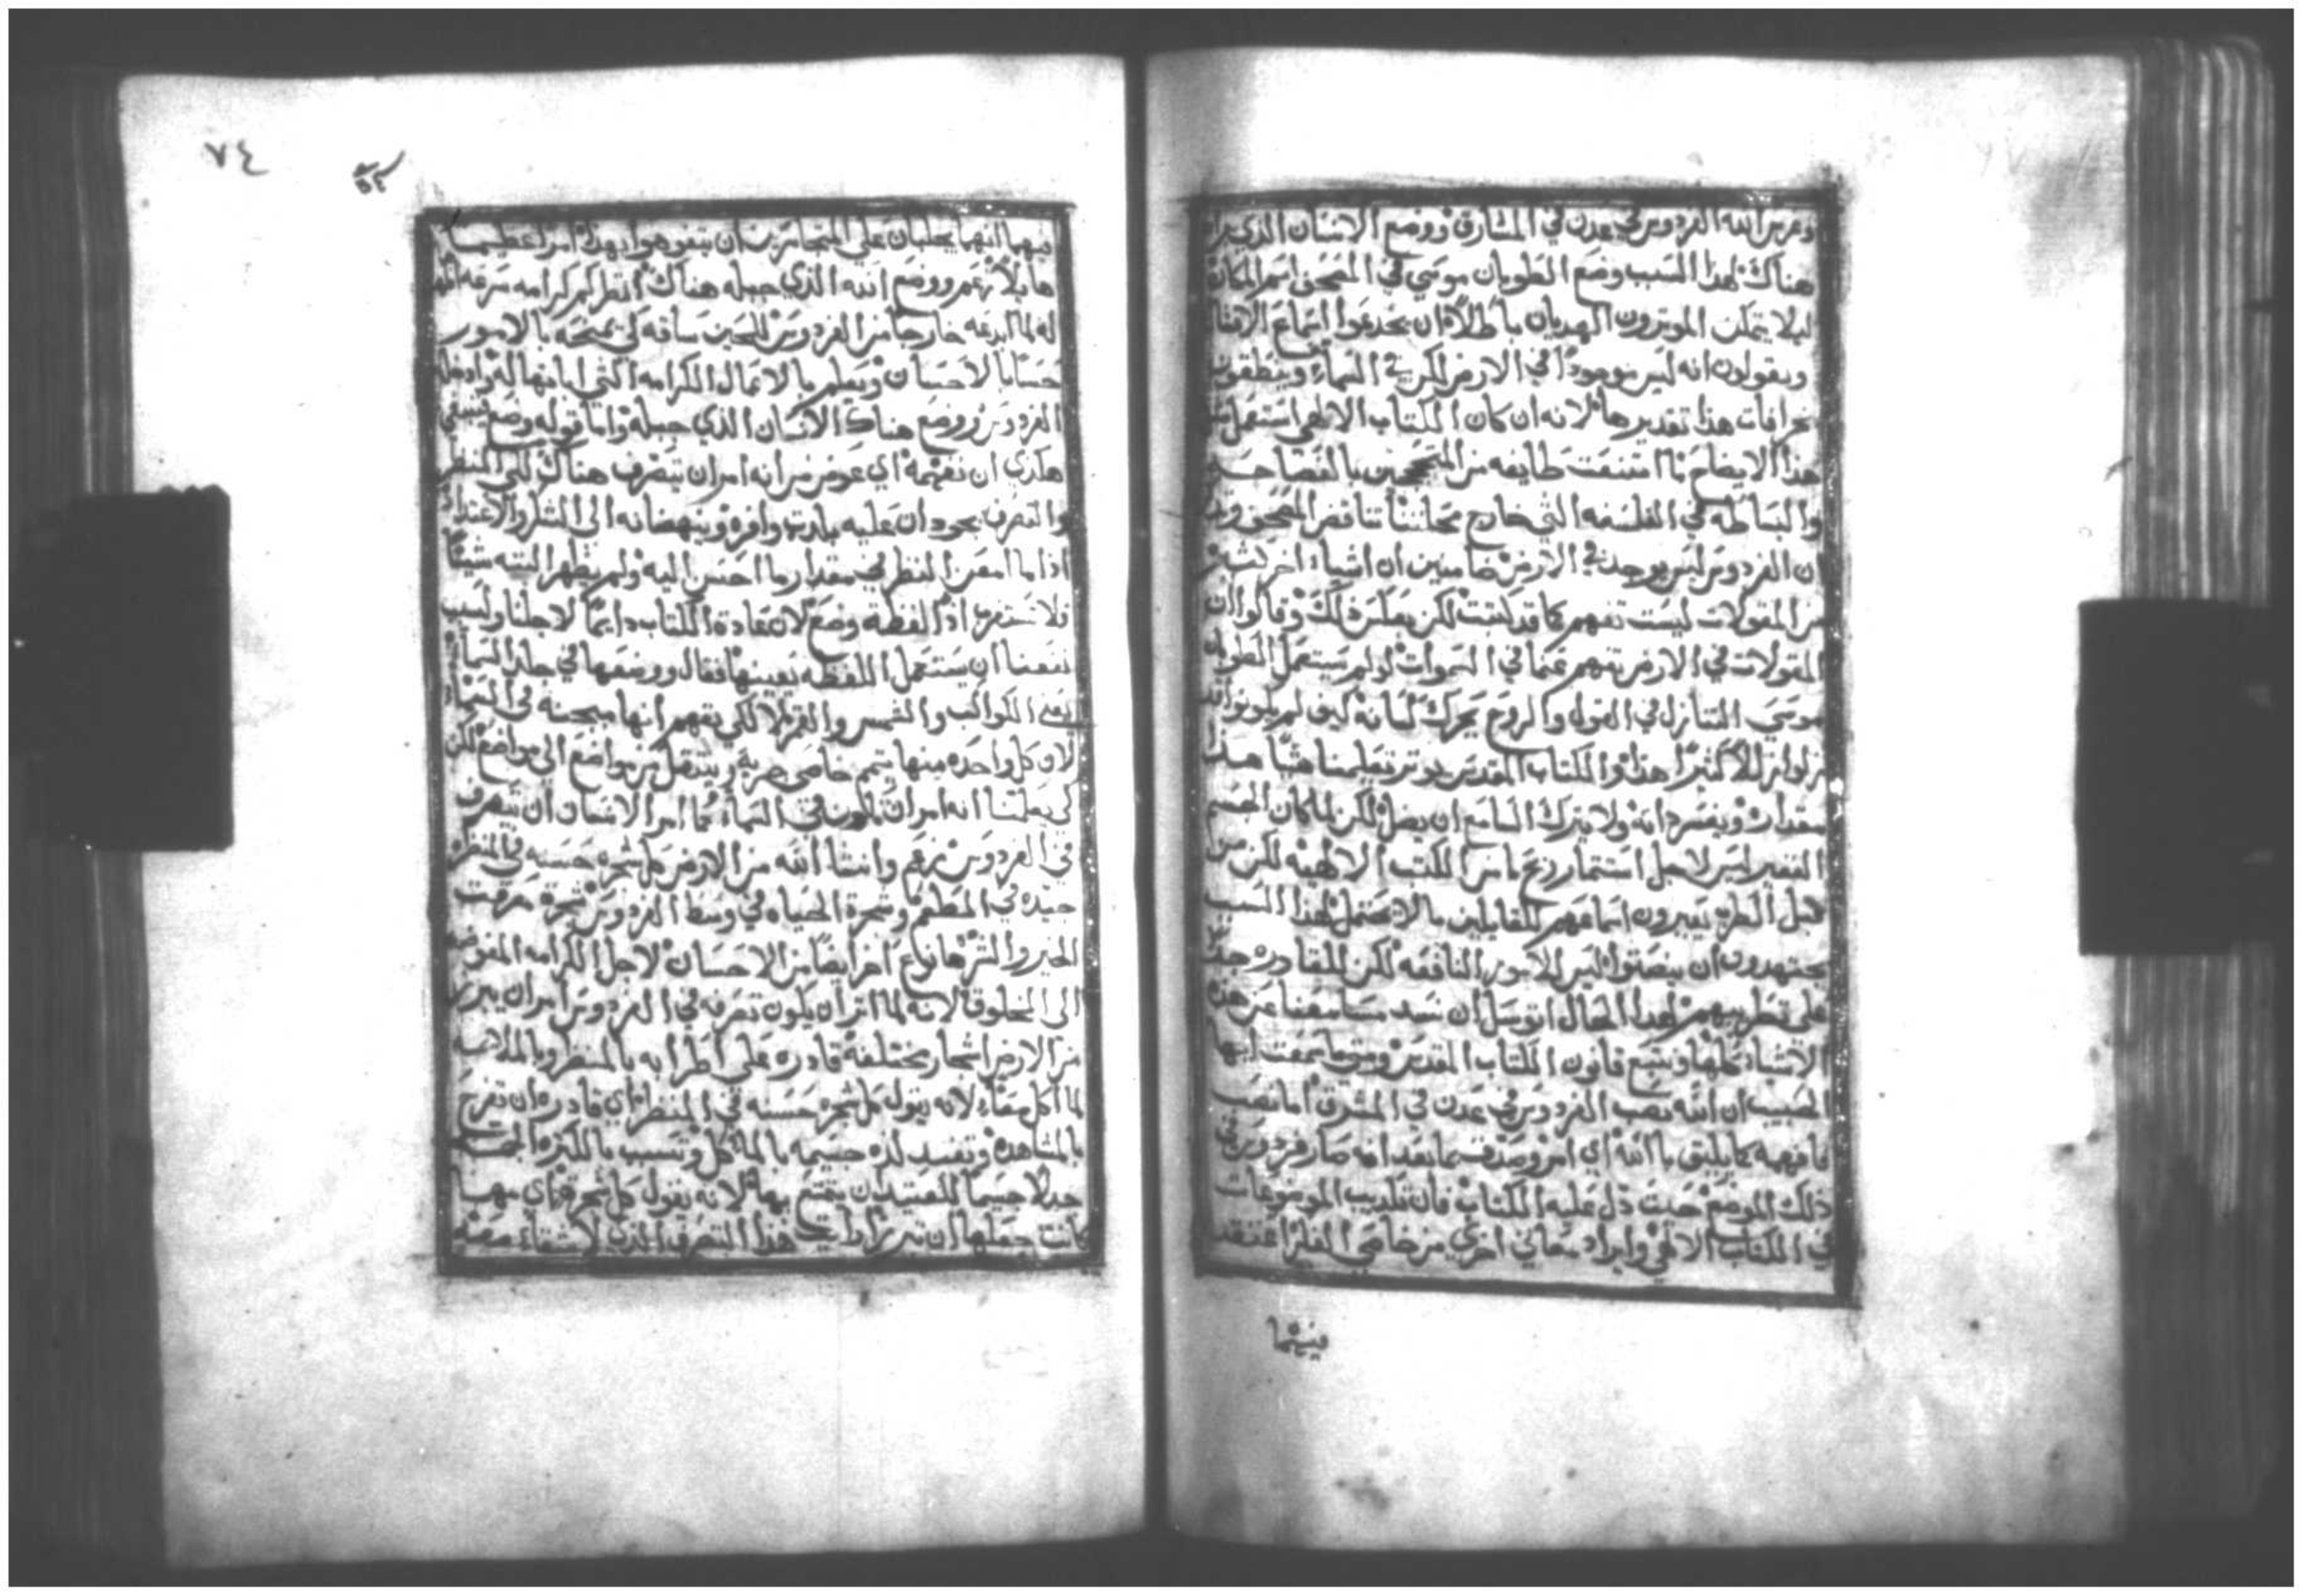 وغرس الله الفردوس في عدن في المشارق ووضع الانسان الذي
هناك لهذا السبب وضع الطوبان موسي في المصحف اسم المكان
ليلا يتمكن الموثرون الهديان باطلا ان يخدعوا اسماع
ويقولون انه ليس موجودا في الارض لكن في السماء وينطقون
بخرافات هذا تقديرها لانه ان كان الكتاب الالهي استعمل
هذا الايضاح ما امتنعت طايفه من بالفصاحه
والبساطه في الفلسفه التي خارج تناقض المصحف
ان الفردوس ليس يوجد في الارض ان اشياء اخر
من المقولات ليست تفهم كما قد كتبت لكن بعكس ذلك وقالوا ان
المقولات في الارض تفهم عنها في السموات لو لم يستعمل الطوبان
موسي التنازل في القول والروح يحرك لسانه كيف لم يكونوا
كثيرا هذا والكتاب المقدس تعليمنا شيا هذا
مقداره ويفسر ذاته ولا يترك السامع ان يضل لكن لما كان
ليس لاجل استثمار ربح ما من الكتب الالهيه لكن من
قبل الطرب يعيرون اسماعهم للقايلين ما لا يحتمل لهذا السبب
يجتهدون ان ينصتوا ليس للامور النافعه لكن للقادره جدا
علي تطريبهم لهذا الحال اتوسل ان نسد مسامعنا عن هذه
الاشياء كلها ونتبع قانون الكتاب المقدس ومتي ما سمعت ايها
الحبيب ان الله نصب الفردوس في عدن في المشرق اما نصب
فافهمه كما يليق بالله اي امر وصدق بما بعد انه صار فردوس في
ذلك الموضع حيث دل عليه الكتاب فان تكديب الموضوعات
في الكتاب الالهي وايراد معاني اخري من خاصي الفكر اعتقد
٧٤
فيهما انهما يجلبان علي المتجاسرين ان يتفوهوا بهذا امرا عظيما
هايلا نعم ووضع الله الذي جبله هناك انظر كم كرامه
له لما ابدعه خارجا من الفردوس للحين ساقه لكي يمنحه بالامور
حسا بالاحسان ويعلم بالاعمال الكرامه التي ابانها له وادخله
الفردوس ووضع هناك الانسان الذي جبله واما قوله وضع ينبغي
هكذي ان نفهمه اي عوض من انه امر ان يتصرف هناك لكي المنظر
والتصرف يجودان عليه بلذة وافره وينهضانه الي الشكر والاعتداد
اذا ما امعن النظر في مقدار ما احسن اليه ولم يظهر البته شيئا
فلا تستغرب اذا لفظة وضع لان عادة الكتاب دايما لاجلنا ولسبب
نفعنا ان يستعمل اللفظه بعينها فقال ووضعها في جلد السماء
يعني الكواكب والشمس والقمر لا لكي نفهم انها في السماء
لان كل واحده منها تتمم خاصي جريه وينتقل من مواضع الي مواضع لكن
لكي يعلمنا انه امر ان تكون في السماء كما امر الانسان ان يتصرف
في الفردوس نعم وانشا الله من الارض كل شجره حسنه في المنظر
جيده في المطعم وشجرة الحياه في وسط الفردوس وشجرة معرفت
الخير والشر ها نوع اخر ايضا من الاحسان لاجل الكرامه المفوضه
الي المخلوق لانه لما اثر ان يكون تصرفه في الفردوس امر ان يبرز
من الارض اشجار مختلفه قادره علي اطرابه بالمنظر وبالملايمه
لما اكل معا لانه يقول كل شجره حسنه في المنظر اي قادره ان تفرح
بالمشاهده وتفيد لذه جسيمه بالماكل وتسبب بالكثره
جدلا جسيما للمعتد ان يتمتع بها لانه يقول كل شجره اي مهما
كانت جعلها ان تبرز ارايت هذا التصرف الذي لا شقاء معه